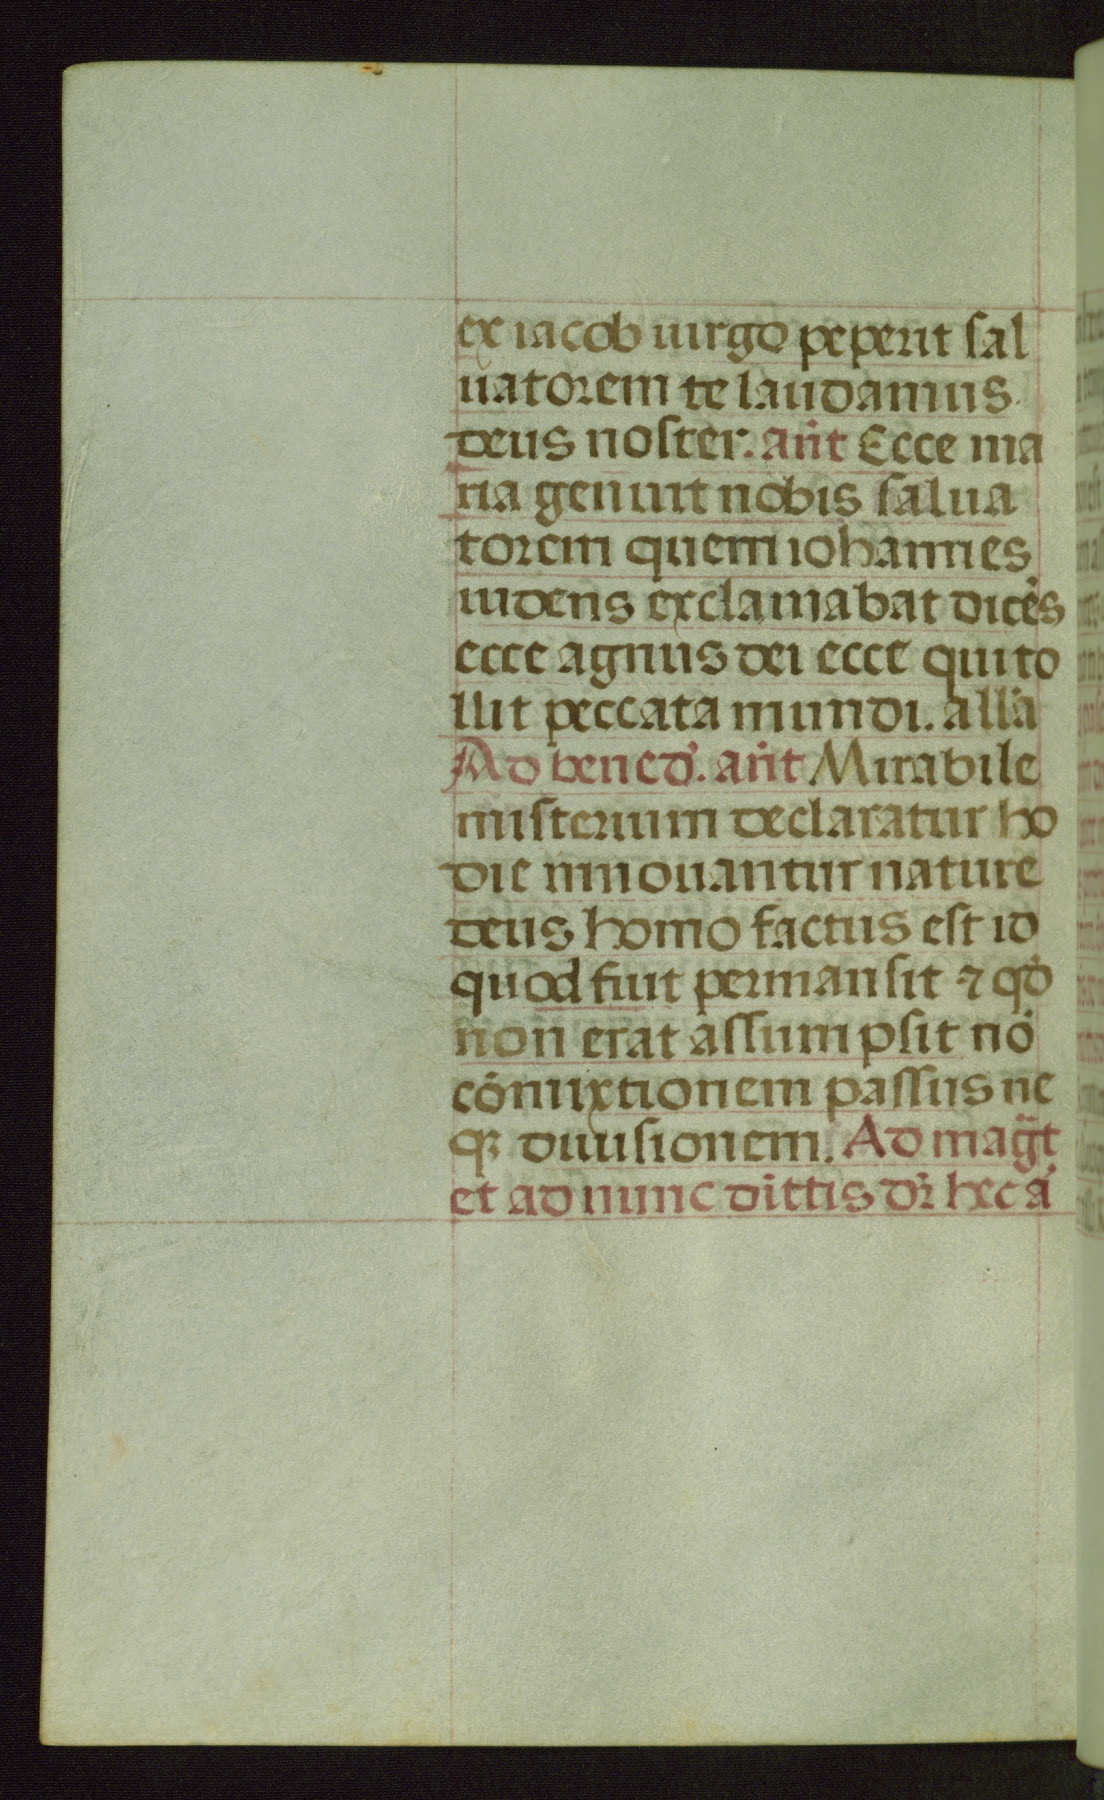 ex iacob uirgo peperit sal
uatorem te laudamus
deus noster. añt Ecce ma
ria genuit nobis salua
torem quem iohannes
uidens exclamabat dicēs
ecce agnus dei ecce qui to
llit peccata mundi. all'a
Ad bened'. añt Mirabile
misterium declaratur ho
die innouantur nature
deus homo factus est id
quod fuit permansit ⁊ qđ
non erat assumpsit nō
cōmixtionem passus ne
qȝ diuisionem. Ad mag̃t
et ad nunc dīttis dr̄ hec ā